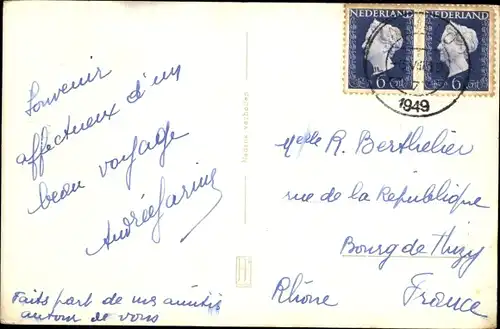 Souvenir
affectueux d'un
beau voyage
Andrée
Faits part de mes amitiés
autour de vous
Nadruk verboden
NEDERLAND
NEDERLAND
6 ct
6 ct
1949
Melle R. Berthelier
rue de la République
Bourg de Thizy
Rhône France